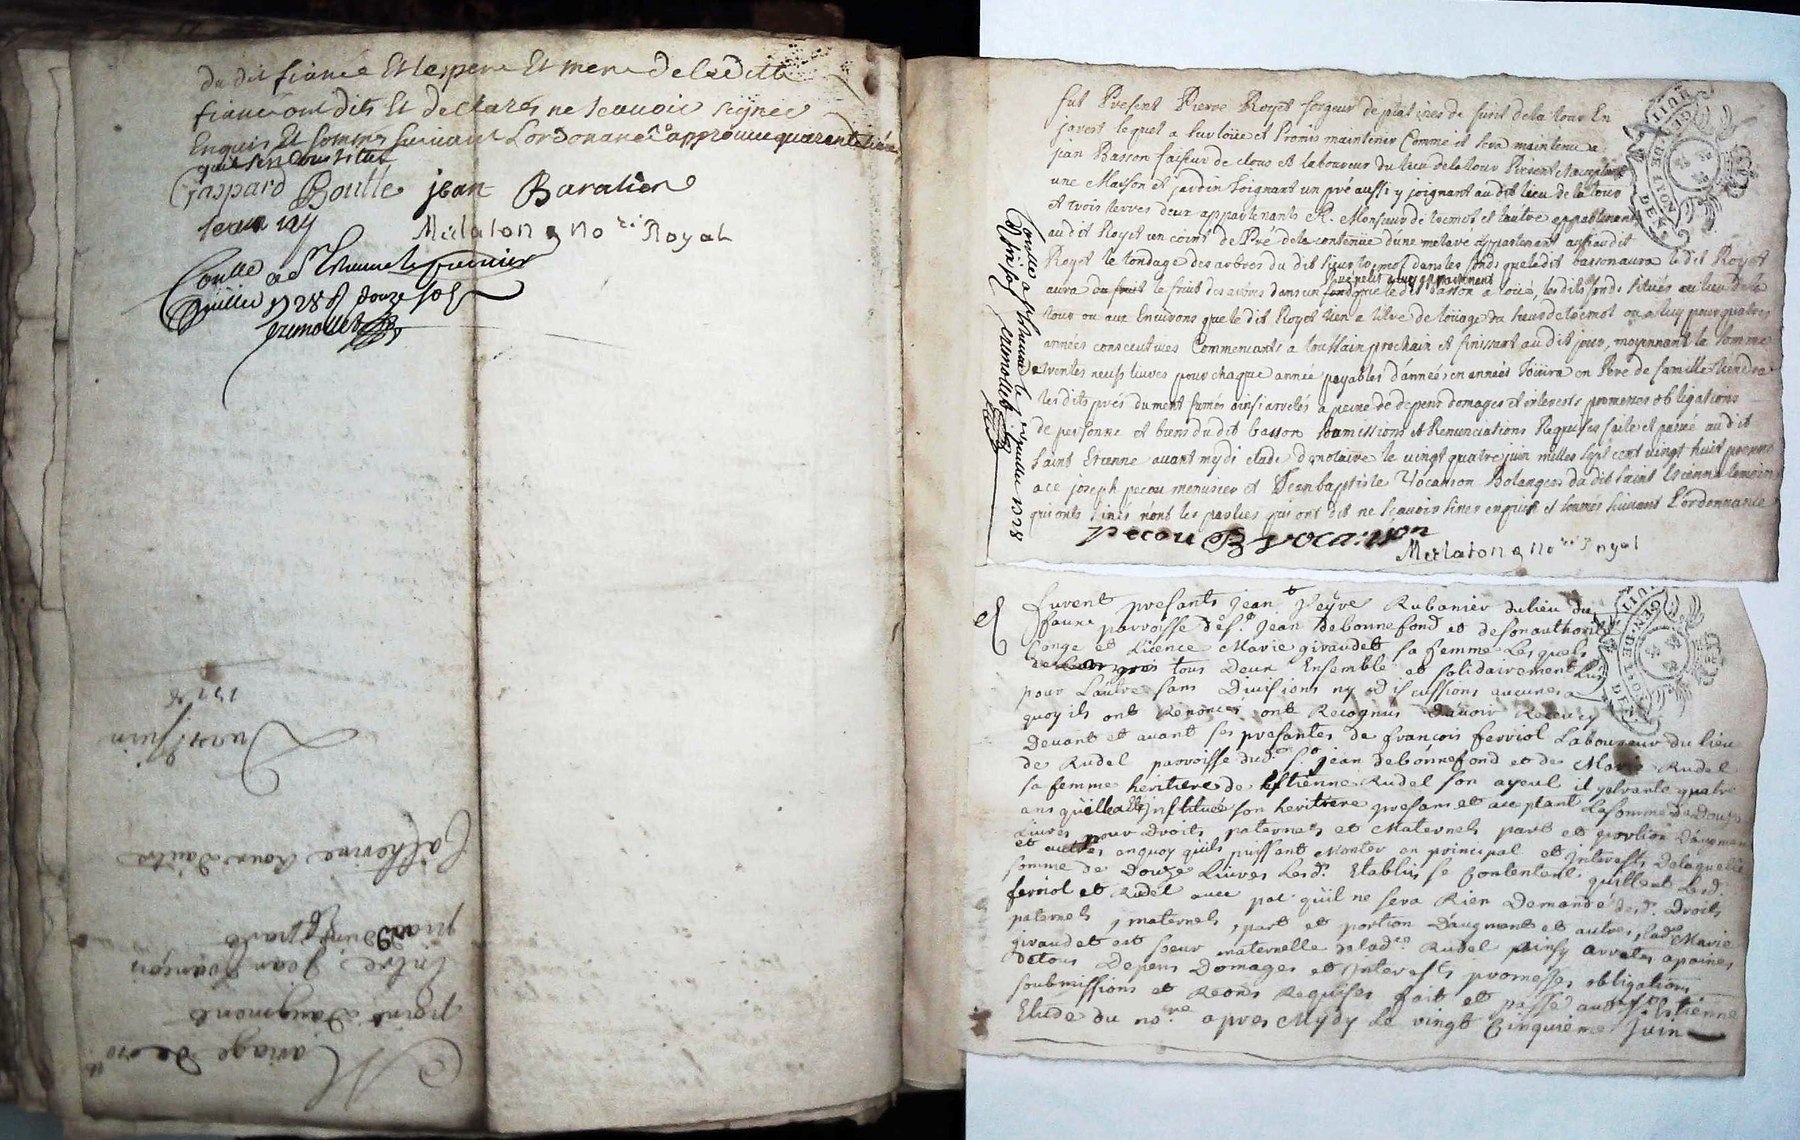 du dit fiancé Et les pere Et mere de la ditte
fiancé ont dits Et declarés ne scavoir signer
Enquis Et sommes suivant Lordonance approuvé quarente
Gaspard Boulle jean Baralier
Merlaton no.re Royal
Conlle a St Etienne le premier
Juillet 1728 R douze sols
Grimollet
Mariage de 
point d'augment
Entre, Jean françois
 d'une part
Catherine d'autre
Du juin
1728
fut Present Pierre Royet forgeur de platines de fusit de la tour En
jarest lequel a sur loüe et Promis maintenir Comme il sera maintenu a
jian Basson faiseur de clous et laboureur du lieu de la tour Present Nacceptant
une Maison et jardin joignant un pré aussi y joignant au dit lieu de la tour
et trois terres deux appartenants A. Monsieur de tocmot et lautre appartenant
au dit Royet un coint de Pré de la contenüe d'une metavé appartenant aussi au dit
Royet le tondage des arbres du dit sieur tocmot dans les fonds que le dit basson aura le dit Royet
aura le fruit des arbres dans un fond que le dit Basson a loüé, les dits fonds situés au lieu de la
tour ou aux Environs que le dit Royet tien a titre de loüage du sieur de tocmot ou a luy pour quatres
années consecutives Commencants a toussain prochain et finissant au dit jour, moyennant la somme
de trentes neufs livres pour chaque année payables d'années en années joüira en Pere de famille tiendra
les dits prés dument fumés ainsi arretés a peine de depens domages et interests promesses obligations
de personne et biens du dit basson soumissions et Renunciations Requises faite et passé au dit
Saint Etienne avant mydi etude du notaire le vingt quatre juin milles sept cent vingt huit presens
a ce joseph pecou menusier et Jean baptiste Vocanson Bolanger du dit saint Etienne temoins
qui onts sinés nont les parties qui ont dit ne scavoir siner enquis et sommés suivant l'ordonnance
Pecou B vocanson
Merlaton no.re Royal
Conlle a St Etienne le Juillet 1728
R six sols Grimollet
furent presants jean Peyre Rubanier du lieu du
faure parroisse de St Jean de bonnefond et de son authorité
Conge et Licence Marie giraudet sa femme Lesquels
tous deux Ensemble et solidairement Lun
pour Lautre sans Divisions ny discussions aucunes a
quoy ils ont Renoncer ont Recognus Davoir Receu cy
Devant et avant ses presantes de françois ferriol Laboureur du lieu
de Rudel parroisse dud. St jean de bonnefond et de Marie Rudel
sa femme heritiere de Estienne Rudel son ayeul il y soixante quatre
ans quil instituée son heritiere presans et aceptant La somme de Douze
Livres pour Droits paternels et Maternels part et portion Daugment
et autres en quoy quils puissent Monter en principal et Interests De laquelle
somme de Douze Livres Lesd. Etablis se Contentent quittent Lesd.
ferriol et Rudel avec pac quil ne sera Rien Demandé desd. Droits
paternels, maternels, part et portion Daugment et autres, Lade Marie
giraudet est soeur maternelle de lade Rudel ainsy arretes a peines
de tous Depens Domages et Interests promesses obligations
soubmissions et Reons Requises fait et passé aud. St Estienne
Etude du no.re apres Mydy Le vingt Cinquieme Juin
GEN. DE LYON
HUIT DEN